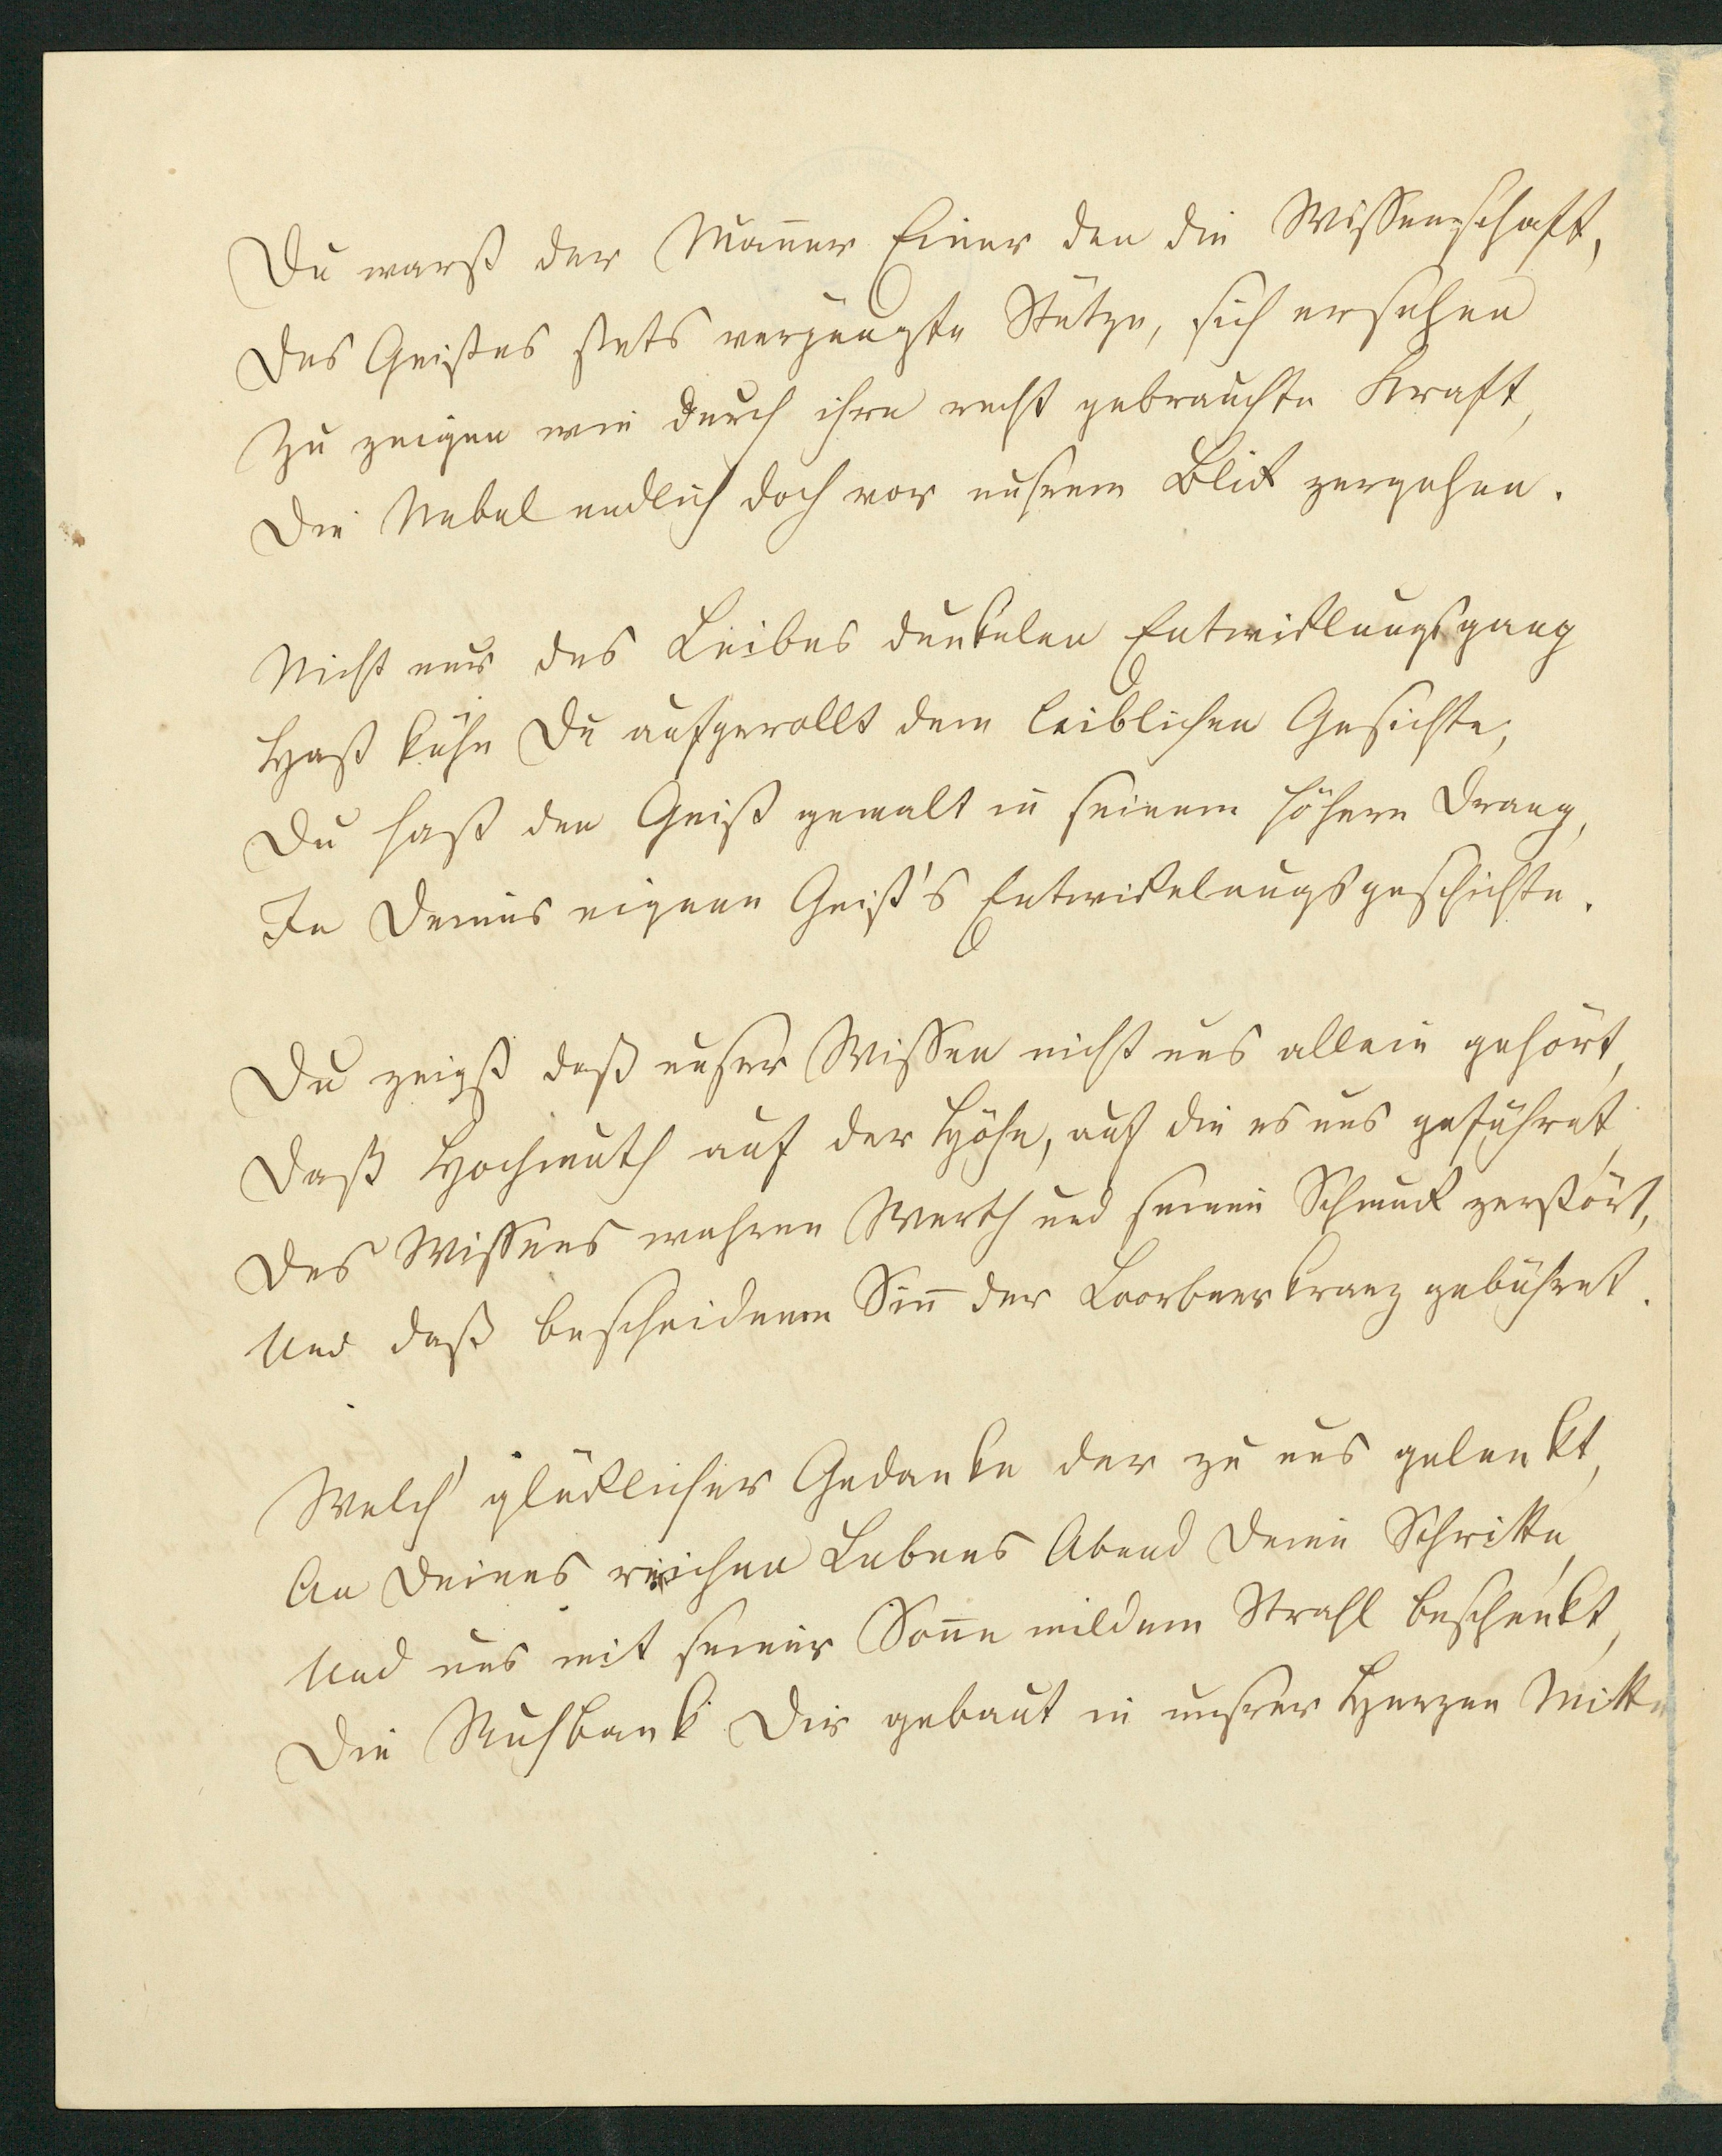 Du warst der Mañer Einer den die Wissenschaft,
Des Geistes stets verjüngte Stütze, sich ersehen
Zu zeigen wie durch ihre recht gebrauchte Kraft,
Die Nebel endlich doch vor unsrem Blick zergehen.
Nicht nur des Leibes dunkelen Entwicklungsgang
Hast kühn Du aufgerollt dem leiblichen Gesichte,
Du hast den Geist gemalt in seinem höhern Drang,
In Deines eignen Geist's Entwickelungsgeschichte.
Du zeigst daß unser Wissen nicht uns allein gehört,
Daß Hochmuth auf der Höhe, auf die es uns geführet,
Des Wissens wahren Werth und seinen Schmuck zerstört,
Und daß bescheidnem Siñ der Loorbeerkranz gebühret.
Welch' glücklicher Gedanke der zu uns gelenkt,
An Deines reichen Lebens Abend Deine Schritte,
Und uns mit seiner Soñe mildem Strahl beschenkt,
Die Ruhbank Dir gebaut in unsrer Herzen Mitte